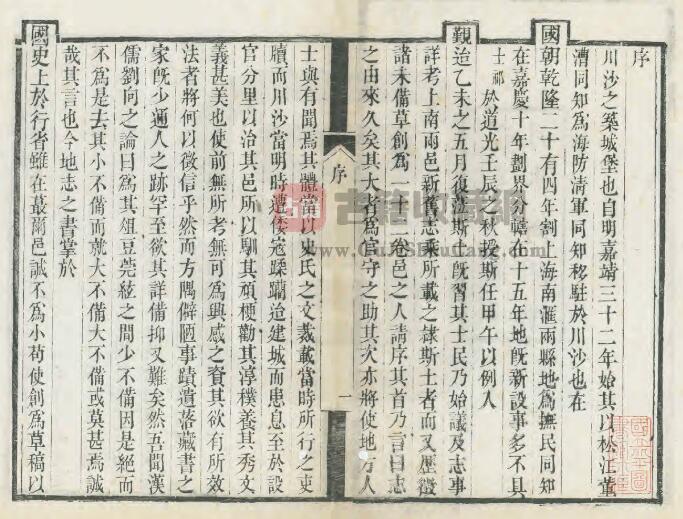 序
川沙之築城堡也自明嘉靖三十二年始其以松江董
漕同知為海防清軍同知移駐於川沙也在
國朝乾隆二十有四年割上海南滙兩縣地為撫民同知
在嘉慶十年劃界分轄在十五年地旣新設事多不具
士祁於道光壬辰秋授斯任甲午以例入
覲迨乙未之五月復蒞斯土旣習其士民乃始議及志事
詳考上南兩邑新舊志乘所載之隸斯土者而又歷徵
諸未備草創為一十二卷邑之人請序其首乃言曰志
之由來久矣其大者為官守之助其次亦將使地方人
序
一
士與有聞焉其體當以史氏之文裁載當時所行之吏
牘而川沙當明時遭倭寇蹂躪迨建城而患息至於設
官分里以治其邑所以馴其頑梗勸其淳樸養其秀文
義甚美也使前無所考無可為興感之資其欲有所效
法者將何以徵信乎然而方隅僻陋事蹟遺落藏書之
家旣少通人之跡罕至欲其詳備抑又難矣然吾聞漢
儒劉向之論曰為其俎豆筦絃之間少不備因是絕而
不為是去其小不備而就大不備大不備或莫甚焉誠
哉其言也今地志之書掌於
國史上於行省雖在蕞爾邑誠不為小苟使創為草稿以
古籍收藏网
www.GujiShuCang.com